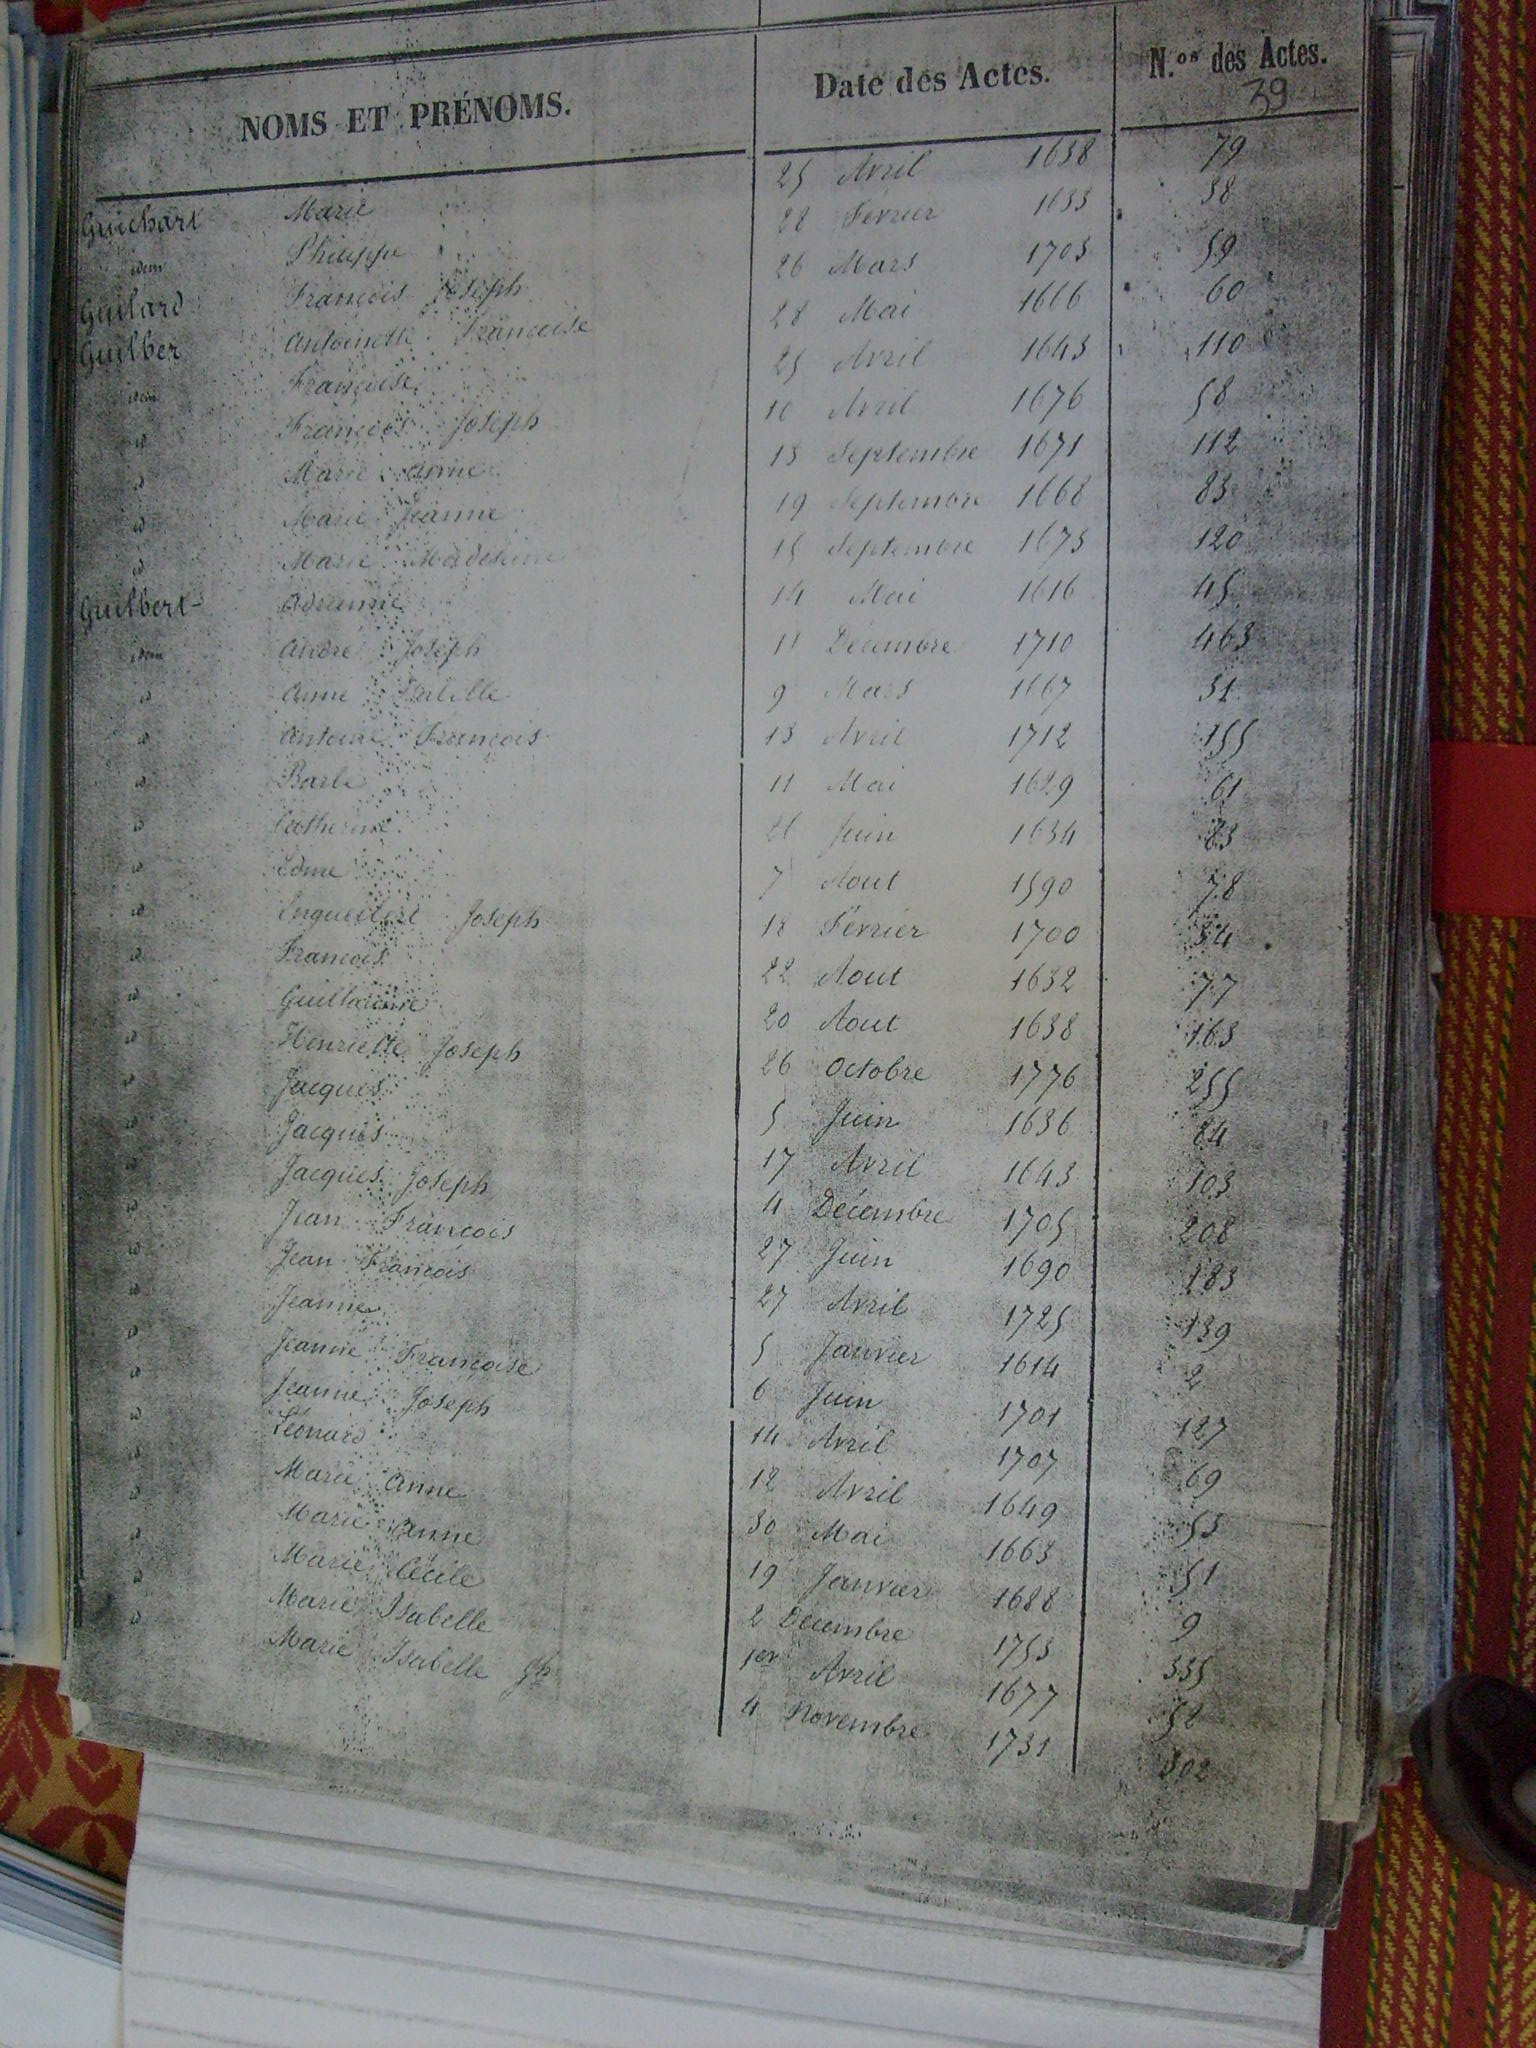 NOMS ET PRÉNOMS. Date des Actes. N.os des Actes.
39
Guichart Marie 25 Avril 1638 79
idem Philippe 28 Février 1633 38
Guilard François Joseph 26 Mars 1703 59
Guilber Antoinette Françoise 28 Mai 1666 60
idem Françoise 25 Avril 1643 110
id François Joseph 10 Avril 1676 58
id Marie Anne 13 Septembre 1671 112
id Marie Jeanne 19 Septembre 1668 83
id Marie Madeleine 15 Septembre 1673 120
Guilbert Adrienne 14 Mai 1616 45
idem André Joseph 11 Décembre 1710 463
id Anne Isabelle 9 Mars 1667 31
id Antoine François 13 Avril 1712 155
id Barbe 11 Mai 1629 61
id Catherine 26 Juin 1634 83
id Edme 7 Aout 1590 78
id Joseph 18 Février 1700 34
id François 22 Aout 1632 77
id Guillaume 20 Aout 1638 163
id Henriette Joseph 26 Octobre 1776 255
id Jacques 5 Juin 1636 84
id Jacques 17 Avril 1643 103
id Jacques Joseph 4 Décembre 1705 208
id Jean François 27 Juin 1690 183
id Jean François 27 Avril 1725 139
id Jeanne 5 Janvier 1614 2
id Jeanne Françoise 6 Juin 1701 127
id Jeanne Joseph 14 Avril 1707 69
id Léonard 12 Avril 1649 53
id Marie Anne 30 Mai 1663 51
id Marie Anne 19 Janvier 1688 9
id Marie Cécile 2 Décembre 1753 335
id Marie Isabelle 1er Avril 1677 52
id Marie Isabelle Jh 4 Novembre 1731 302